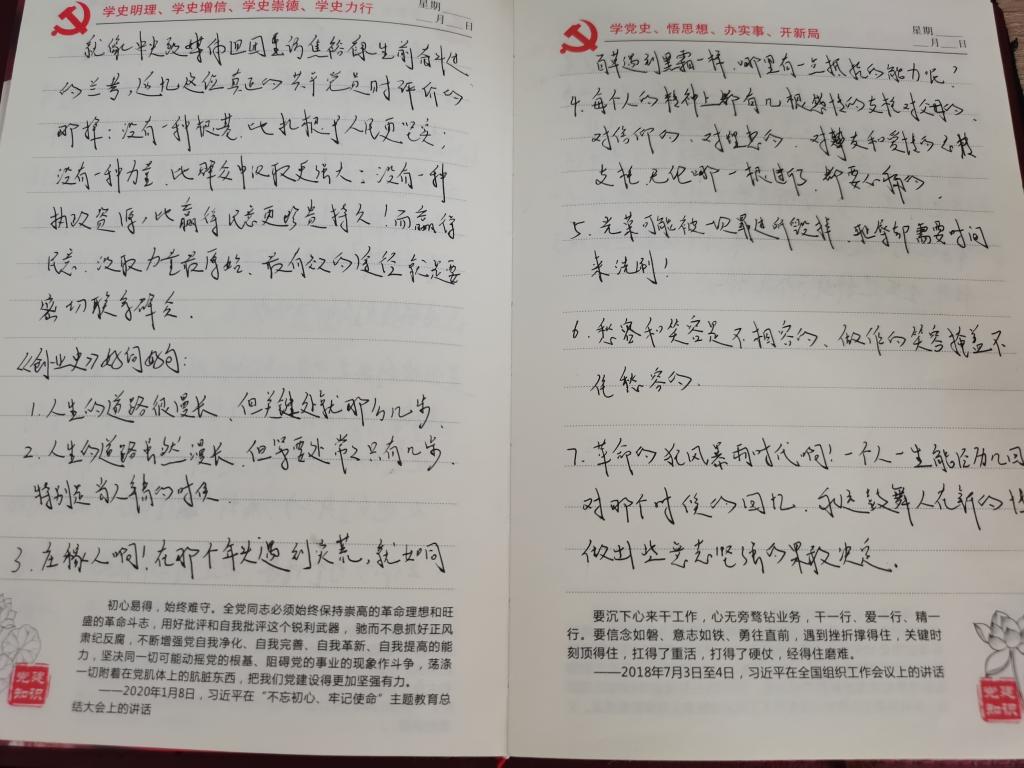 学史明理、学史增信、学史崇德、学史力行
星期____
___月___日
就像中央政媒体回因重访焦裕禄生前奋斗过
的兰考,追忆这位真正的共产党员时评价的
那样:没有一种根基,比扎根于人民更坚实;
没有一种力量,比群众中汲取更强大;没有一种
执政资源,比赢得民意更珍贵持久!而赢得
民意、汲取力量最原始、最有效的途径就是要
密切联系群众.
《创业史》好词好句:
1.人生的道路很漫长、但关键处就那么几步.
2.人生的道路虽然漫长、但紧要处常常只有几步、
特别是当人年轻的时候.
3.庄稼人啊!在那个年头遇到灾荒,就如同
初心易得,始终难守。全党同志必须始终保持崇高的革命理想和旺
盛的革命斗志,用好批评和自我批评这个锐利武器,驰而不息抓好正风
肃纪反腐,不断增强党自我净化、自我完善、自我革新、自我提高的能
力,坚决同一切可能动摇党的根基、阻碍党的事业的现象作斗争,荡涤
一切附着在党肌体上的肮脏东西,把我们党建设得更加坚强有力。
——2020年1月8日,习近平在“不忘初心、牢记使命”主题教育总
结大会上的讲话
党建
知识
学党史、悟思想、办实事、开新局
星期____
___月___日
百草遇到黑霜一样,哪里有一点抵抗的能力呢?
4.每个人的精神上都有几根感情的支柱对父母的、
对信仰的、对理想的、对挚友和爱情的
支柱.无论哪一根
5.光荣可能被一切罪过所毁掉,耻辱却需要时间
来洗刷!
6.愁容和笑容是不相容的、做作的笑容掩盖不
住愁容的.
7.革命的狂风暴雨时代啊!一个人一生能经历几回
对那个时候的回忆、永远鼓舞人在新的
做出些意志坚强的果敢决定.
要沉下心来干工作,心无旁骛钻业务,干一行、爱一行、精一
行。要信念如磐、意志如铁、勇往直前,遇到挫折撑得住,关键时
刻顶得住,扛得了重活,打得了硬仗,经得住磨难。
——2018年7月3日至4日,习近平在全国组织工作会议上的讲话
党建
知识